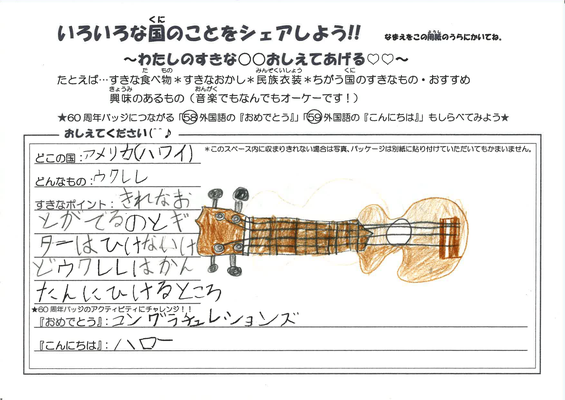 いろいろな国のことをシェアしよう!!
くに
なまえをこの用紙のうらにかいてね。
～わたしのすきな○○おしえてあげる♡♡～
たとえば…すきな食べ物＊すきなおかし＊民族衣装＊ちがう国のすきなもの・おすすめ
興味のあるもの（音楽でもなんでもオーケーです！）
★60周年バッジにつながる「58外国語の『おめでとう』」「59外国語の『こんにちは』」もしらべてみよう★
おしえてください(^^♪
どこの国：アメリカ(ハワイ)
＊このスペース内に収まりきれない場合は写真、パッケージは別紙に貼り付けていただいてもかまいません。
どんなもの：ウクレレ
すきなポイント：きれなお
とがでるのとギ
ターはひけないけ
どウクレレはかん
たんにひけるところ
★60周年バッジのアクティビティにチャレンジ！！
『おめでとう』：コングラチュレションズ
『こんにちは』：ハロー